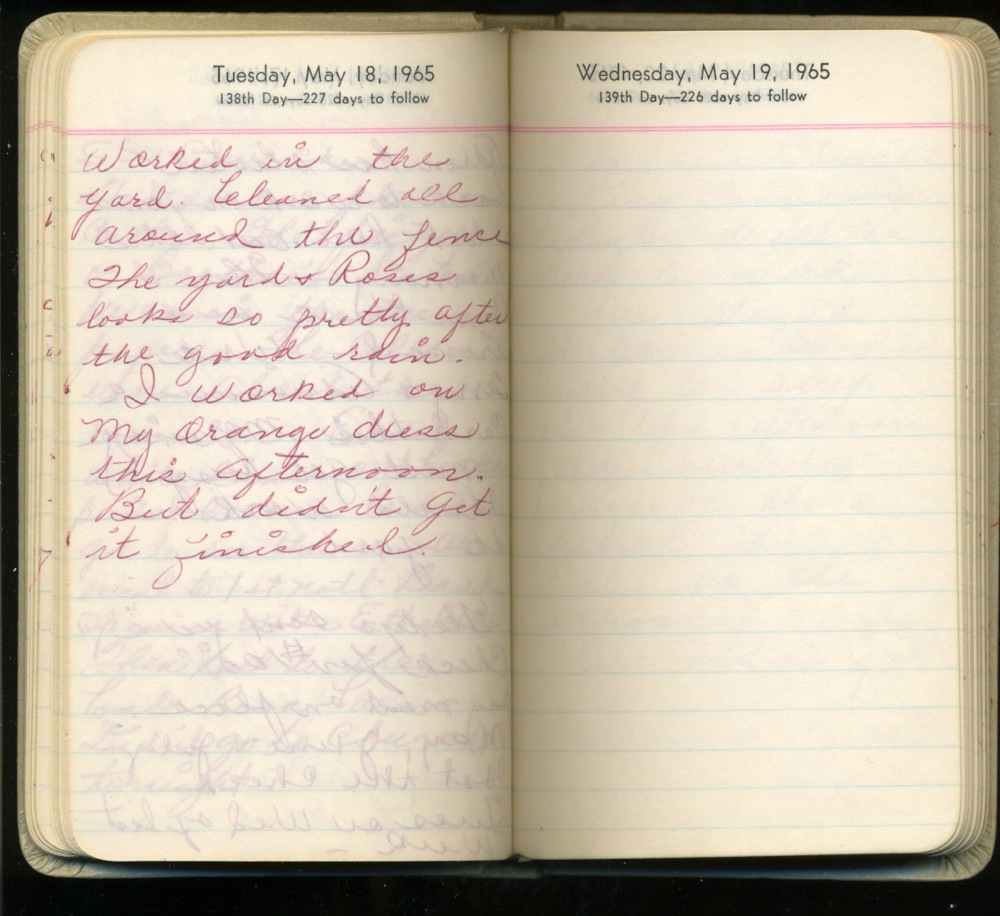 Tuesday, May 18, 1965
138th Day—227 days to follow
Worked in the
yard. Cleaned all
around the fence
The yard & Roses
looks so pretty after
the good rain.
I worked on
My Orange dress
this afternoon.
But didn't get
it finished.
Wednesday, May 19, 1965
139th Day—226 days to follow